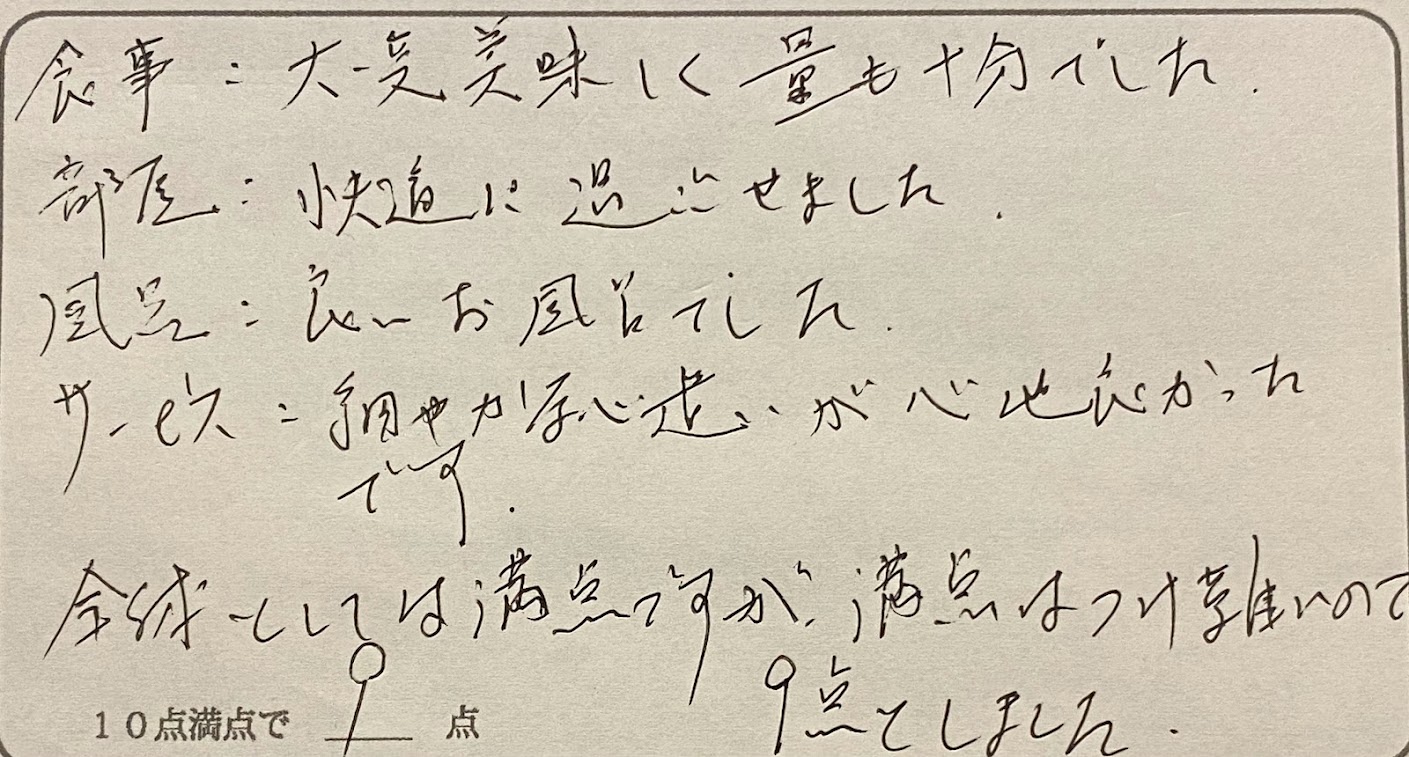 食事：大変美味しく量も十分でした.
部屋：快適に過ごせました.
風呂：良いお風呂でした.
サービス：細やかな心遣いが心地良かった
です.
全体としては満点ですが、満点はつけ難いので
9点としました.
10点満点で 9 点